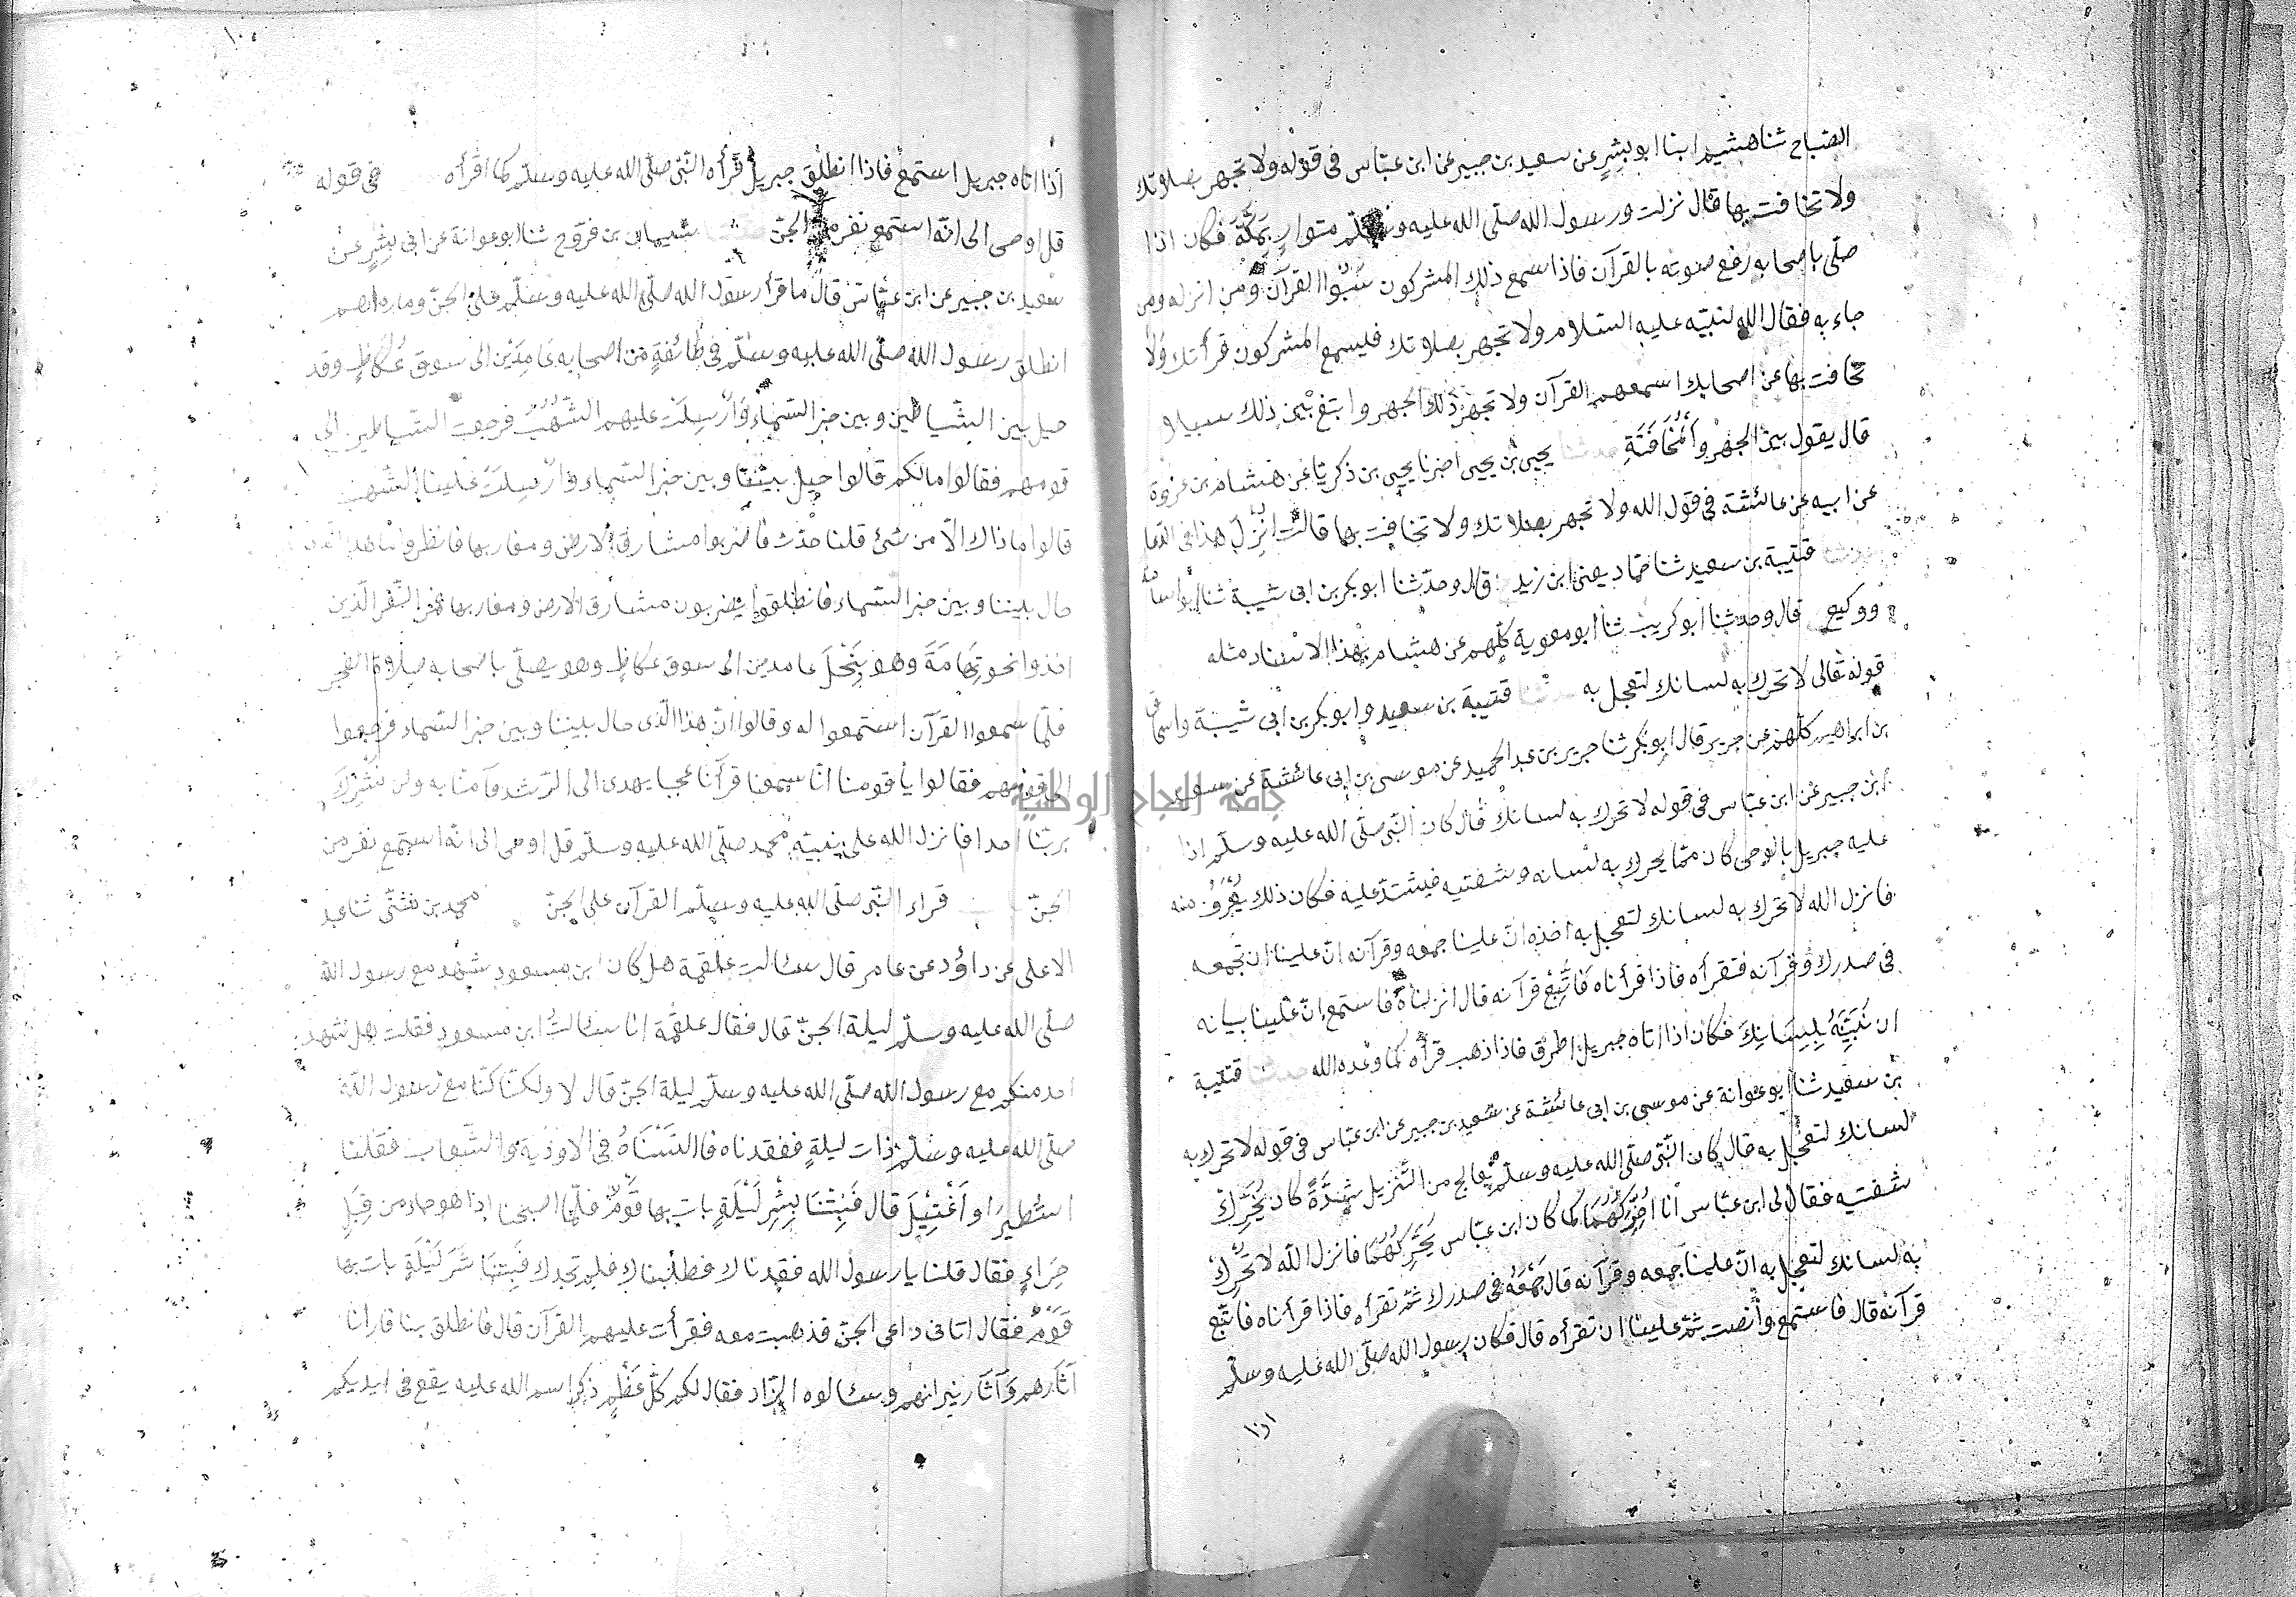 الصباح ثنا هشيم ابنا ابو بشر عن سعيد بن جبير عن ابن عباس في قوله ولا تجهر بصلاتك
ولا تخافت بها قال نزلت ورسول الله صلى الله عليه وسلم متوار بمكة فكان اذا
صلى باصحابه رفع صوته بالقرآن فاذا سمع ذلك المشركون سبوا القرآن ومن انزله ومن
جاء به فقال الله لنبيه عليه السلام ولا تجهر بصلاتك فيسمع المشركون قرأتك ولا
تخافت بها عن اصحابك اسمعهم القرآن ولا تجهر ذلك الجهر وابتغ بين ذلك سبيلا
قال يقول بين الجهر والمخافتة حدثنا يحيى بن يحيى اخبرنا يحيى بن زكريا عن هشام بن عروة
عن ابيه عن عائشة في قول الله ولا تجهر بصلاتك ولا تخافت بها قالت انزل هذا في الدعا
حدثنا قتيبة بن سعيد ثنا حماد يعني ابن زيد قال وحدثنا ابو بكر بن ابى شيبة ثنا ابو اسامة
ووكيع قال وحدثنا ابو كريب ثنا ابو معوية كلهم عن هشام بهذا الاسناد مثله
قوله تعالى لا تحرك به لسانك لتعجل به حدثنا قتيبة بن سعيد وابو بكر بن ابى شيبة واسحاق
بن ابراهيم كلهم عن جرير قال ابو بكر ثنا جرير بن عبد الحميد عن موسى بن ابى عائشة عن سعيد
ابن جبير عن ابن عباس في قوله لا تحرك به لسانك قال كان النبى صلى الله عليه وسلم اذا
عليه جبريل بالوحى كان مما يحرك به لسانه وشفتيه فيشتد عليه فكان ذلك يعرف منه
فانزل الله لا تحرك به لسانك لتعجل به اخذه ان علينا جمعه وقرآنه ان علينا ان نجمعه
في صدرك وقرآنه فتقرأه فاذا قرأناه فاتبع قرآنه قال انزلناه فاستمع ان علينا بيانه
ان نبينه بلسانك فكان اذا اتاه جبريل اطرق فاذا ذهب قرأه كما وعده الله حدثنا قتيبة
بن سعيد ثنا ابو عوانة عن موسى بن ابى عائشة عن سعيد بن جبير عن ابن عباس في قوله لا تحرك به
لسانك لتعجل به قال كان النبى صلى الله عليه وسلم يعالج من التنزيل شدة كان يحرك
شفتيه فقال لى ابن عباس انا احركهما كما كان ابن عباس يحركهما فانزل الله لا تحرك
به لسانك لتعجل به ان علينا جمعه وقرآنه قال جمعه في صدرك ثم تقرأه فاذا قرأناه فاتبع
قرآنه قال فاستمع وأنصت ثم علينا ان تقرأه قال فكان رسول الله صلى الله عليه وسلم
اذا
اذا اتاه جبريل استمع فاذا انطلق جبريل قرأه النبى صلى الله عليه وسلم كما اقرأه في قوله
قل اوحى الى انه استمع نفر من الجن حدثنا شيبان بن فروخ ثنا ابو عوانة عن ابى بشر عن
سعيد بن جبير عن ابن عباس قال ما قرأ رسول الله صلى الله عليه وسلم على الجن وما راهم
انطلق رسول الله صلى الله عليه وسلم في طائفة من اصحابه عامدين الى سوق عكاظ وقد
حيل بين الشياطين وبين خبر السماء وارسلت عليهم الشهب فرجعت الشياطين الى
قومهم فقالوا مالكم قالوا حيل بيننا وبين خبر السماء وارسلت علينا الشهب
قالوا ما ذاك الا من شئ قلنا حدث فاضربوا مشارق الارض ومغاربها فانظروا ما هذا الذى
حال بيننا وبين خبر السماء فانطلقوا يضربون مشارق الارض ومغاربها فمر النفر الذين
اخذوا نحو تهامة وهو بنخل عامدين الى سوق عكاظ وهو يصلى باصحابه صلاة الفجر
فلما سمعوا القرآن استمعوا له وقالوا ان هذا الذى حال بيننا وبين خبر السماء فرجعوا
الى قومهم فقالوا يا قومنا انا سمعنا قرآنا عجبا يهدى الى الرشد فآمنا به ولن نشرك
بربنا احدا فانزل الله على نبيه محمد صلى الله عليه وسلم قل اوحى الى انه استمع نفر من
الجن قراءة النبى صلى الله عليه وسلم القرآن على الجن محمد بن مثنى ثنا عبد
الاعلى عن داؤد عن عامر قال سئالت علقمة هل كان ابن مسعود شهد مع رسول الله
صلى الله عليه وسلم ليلة الجن قال فقال علقمة انا سئالت ابن مسعود فقلت هل شهد
احد منكم مع رسول الله صلى الله عليه وسلم ليلة الجن قال لا ولكنا كنا مع رسول الله
صلى الله عليه وسلم ذات ليلة ففقدناه فالتمسناه في الاودية والشعاب فقلنا
استطير او اغتيل قال فبتنا بشر ليلة بات بها قوم فلما اصبحنا اذا هو جاء من قبل
حراء فقال قلنا يا رسول الله فقدناك فطلبناك فلم نجدك فبتنا شر ليلة بات بها
قوم فقال اتانى داعى الجن فذهبت معه فقرأت عليهم القرآن قال فانطلق بنا فارانا
آثارهم وآثار نيرانهم وسئالوه الزاد فقال لكم كل عظم ذكر اسم الله عليه يقع في ايديكم